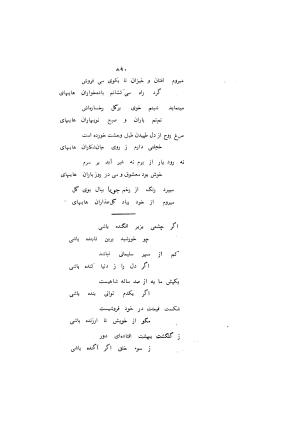 ۸۹۰
میروم افتان و خیزان تا بکوی می فروش
گرد راه می نشانم بادهخواران هایهای
مینماید شبنم خوی برگل رخسارهاش
نمنم باران و صبح نوبهاران هایهای
مرغ روح از دل طپیدن طبل وحشت خورده است
خجلتی دارم ز روی جانشکاران هایهای
نه رود یار از برم نه خبر آید بر سرم
خوش بود معشوق و می در روز باران هایهای
میپرد رنگ از رخم جویا بیال بوی گل
میروم از خود بیاد گلعذاران هایهای
اگر چشمی بزیر افکنده باشی
چو خورشید برین تابنده باشی
کم از سیر سلیمانی نباشد
اگر دل را ز دنیا کنده باشی
بکیش ما به از صد ساله شاهیست
اگر یکدم توانی بنده باشی
شکست قیمتت در خود فروشیست
مگو از خویش تا ارزنده باشی
ز گلگشت بهشت افتادهای دور
ز سوء خلق اگر آکنده باشی